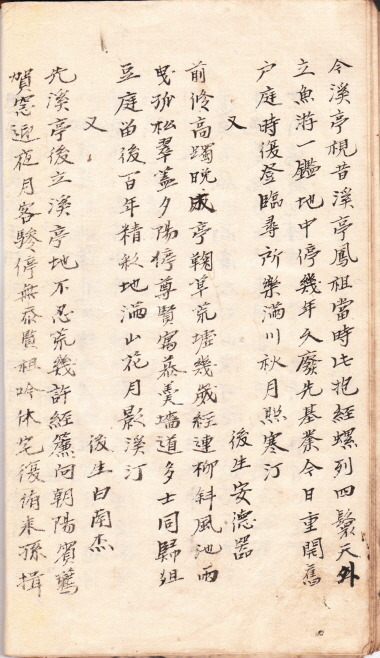 今溪亭視昔溪亭鳳祖當時此抱經螺列四鬟天外
立魚游一鑑地中停幾年久廢先基業今日重開舊
户庭時復登臨尋所樂滿川秋月照寒汀
又 後生安德器
前修高躅晩成亭鞠草荒墟幾歲經連柳斜風池雨
曳孤松翠蓋夕陽停尊賢寓慕羹墻道多士同歸俎
豆庭留後百年精彩地滿山花月影溪汀
又 後生白南杰
先溪亭後立溪亭地不忍荒幾許經簷向朝陽賓鷺
賀窓迎夜月客驂停無忝賢祖吟休宅復銷來孫揖